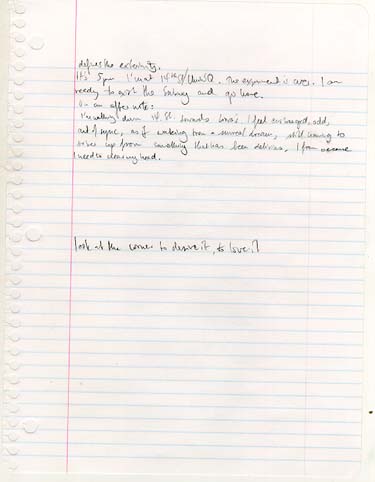 defines the extremity.
It's 5pm I'm at 14th St/UnionSQ. The experiment is over. I am
ready to exit the Subway and go home.
On an after note:
I'm walking down 14 St. towards I feel odd,
out of sync, as if wakening from a surreal dream, still trying to
up from something that has been delirious,
I need a clearing head.
look at the corner to desire it, to love it